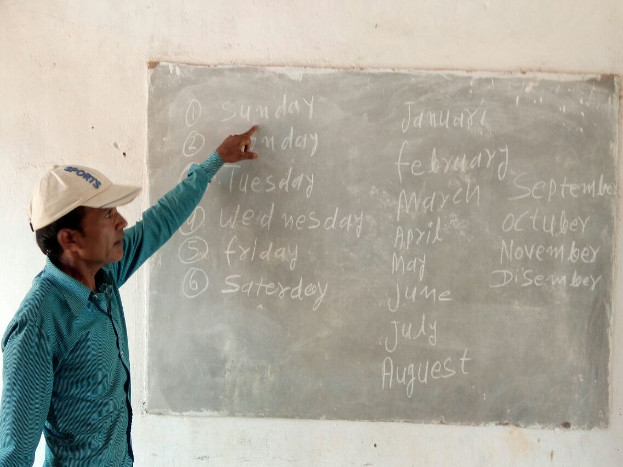 SPORTS
① Sunday
② Monday
Tuesday
④ Wednesday
⑤ friday
⑥ Saterday
Januari
february
March
April
May
June
July
Auguest
September
octuber
November
Disember